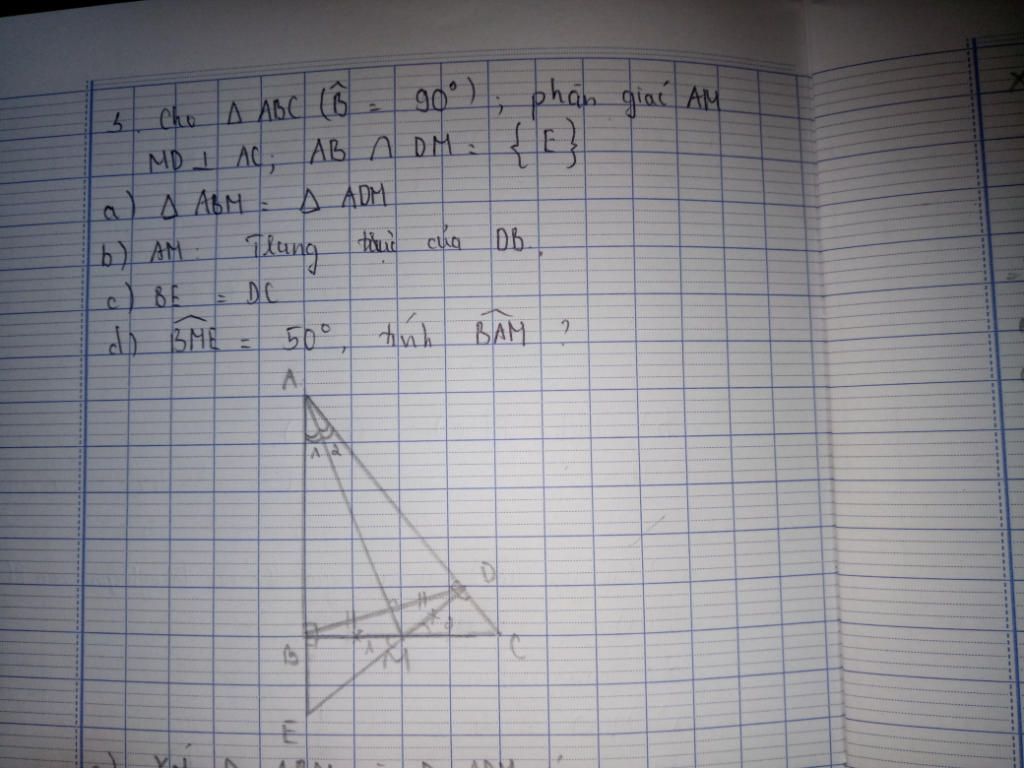 3. Cho Δ ABC (B̂ = 90°); phân giác AM
MD ⊥ AC; AB ∩ DM = {E}
a) Δ ABM = Δ ADM
b) AM: Trung trực của DB.
c) BE = DC
d) \widehat{BME} = 50°, tính \widehat{BAM} ?
A
1 2
D
B 1 M 2 C
E